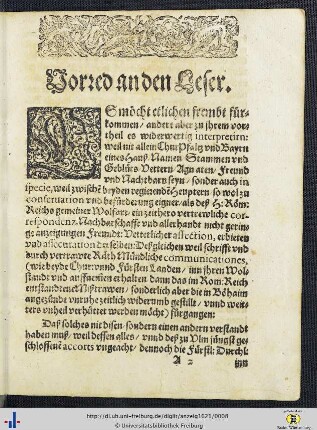 Vorred an den Leser.
ES möcht etlichen frembt für-
kommen / andere aber zu jhrem vor-
theil es widerwertig interpretirn:
weil nit allein Chur Pfaltz vnd Bayrn
eines Hauß Namen Stammen vnd
Geblüts Vettern Agnaten Freund
vnd Nachbarn seyn / sonder auch in
specie, weil zwischẽ beyden regierendẽ Heuptern so wol zu
conseruation vnd befürderung eigner, als deß H: Röm:
Reichs gemeiner Wolfart ein zeithero vertrewliche cor-
respondentz Nachbarschafft vnd allerhandt nicht gerin-
ge anzeigungen Freundt: Vetterlicher affection, erbieten
vnd assecuration derselben: Deßgleichen weil schrifft vnd
durch vertrawte Räth Mündliche communicationes,
(wie beyde Chur: vnnd Fürsten Landen / inn jhren Wol-
standt vnd auffnemen erhalten dann das im Röm: Reich
entstandene Mißtrawen / sonderlich aber die in Böhaim
angezünde vnruhe zeitlich widerumb gestillt / vnnd weit-
ters vnheil verhüttet werden möcht) fürgangen:
Daß solches nit disen / sondern einen andern verstandt
haben muß / weil dessen alles / vnnd deß zu Vlm jüngst ge-
schlossenẽ accorts vngeacht / dennoch die Fürstl: Durchl:
A 2
http://dl.ub.uni-freiburg.de/diglit/anzeig1621/0008
© Universitätsbibliothek Freiburg